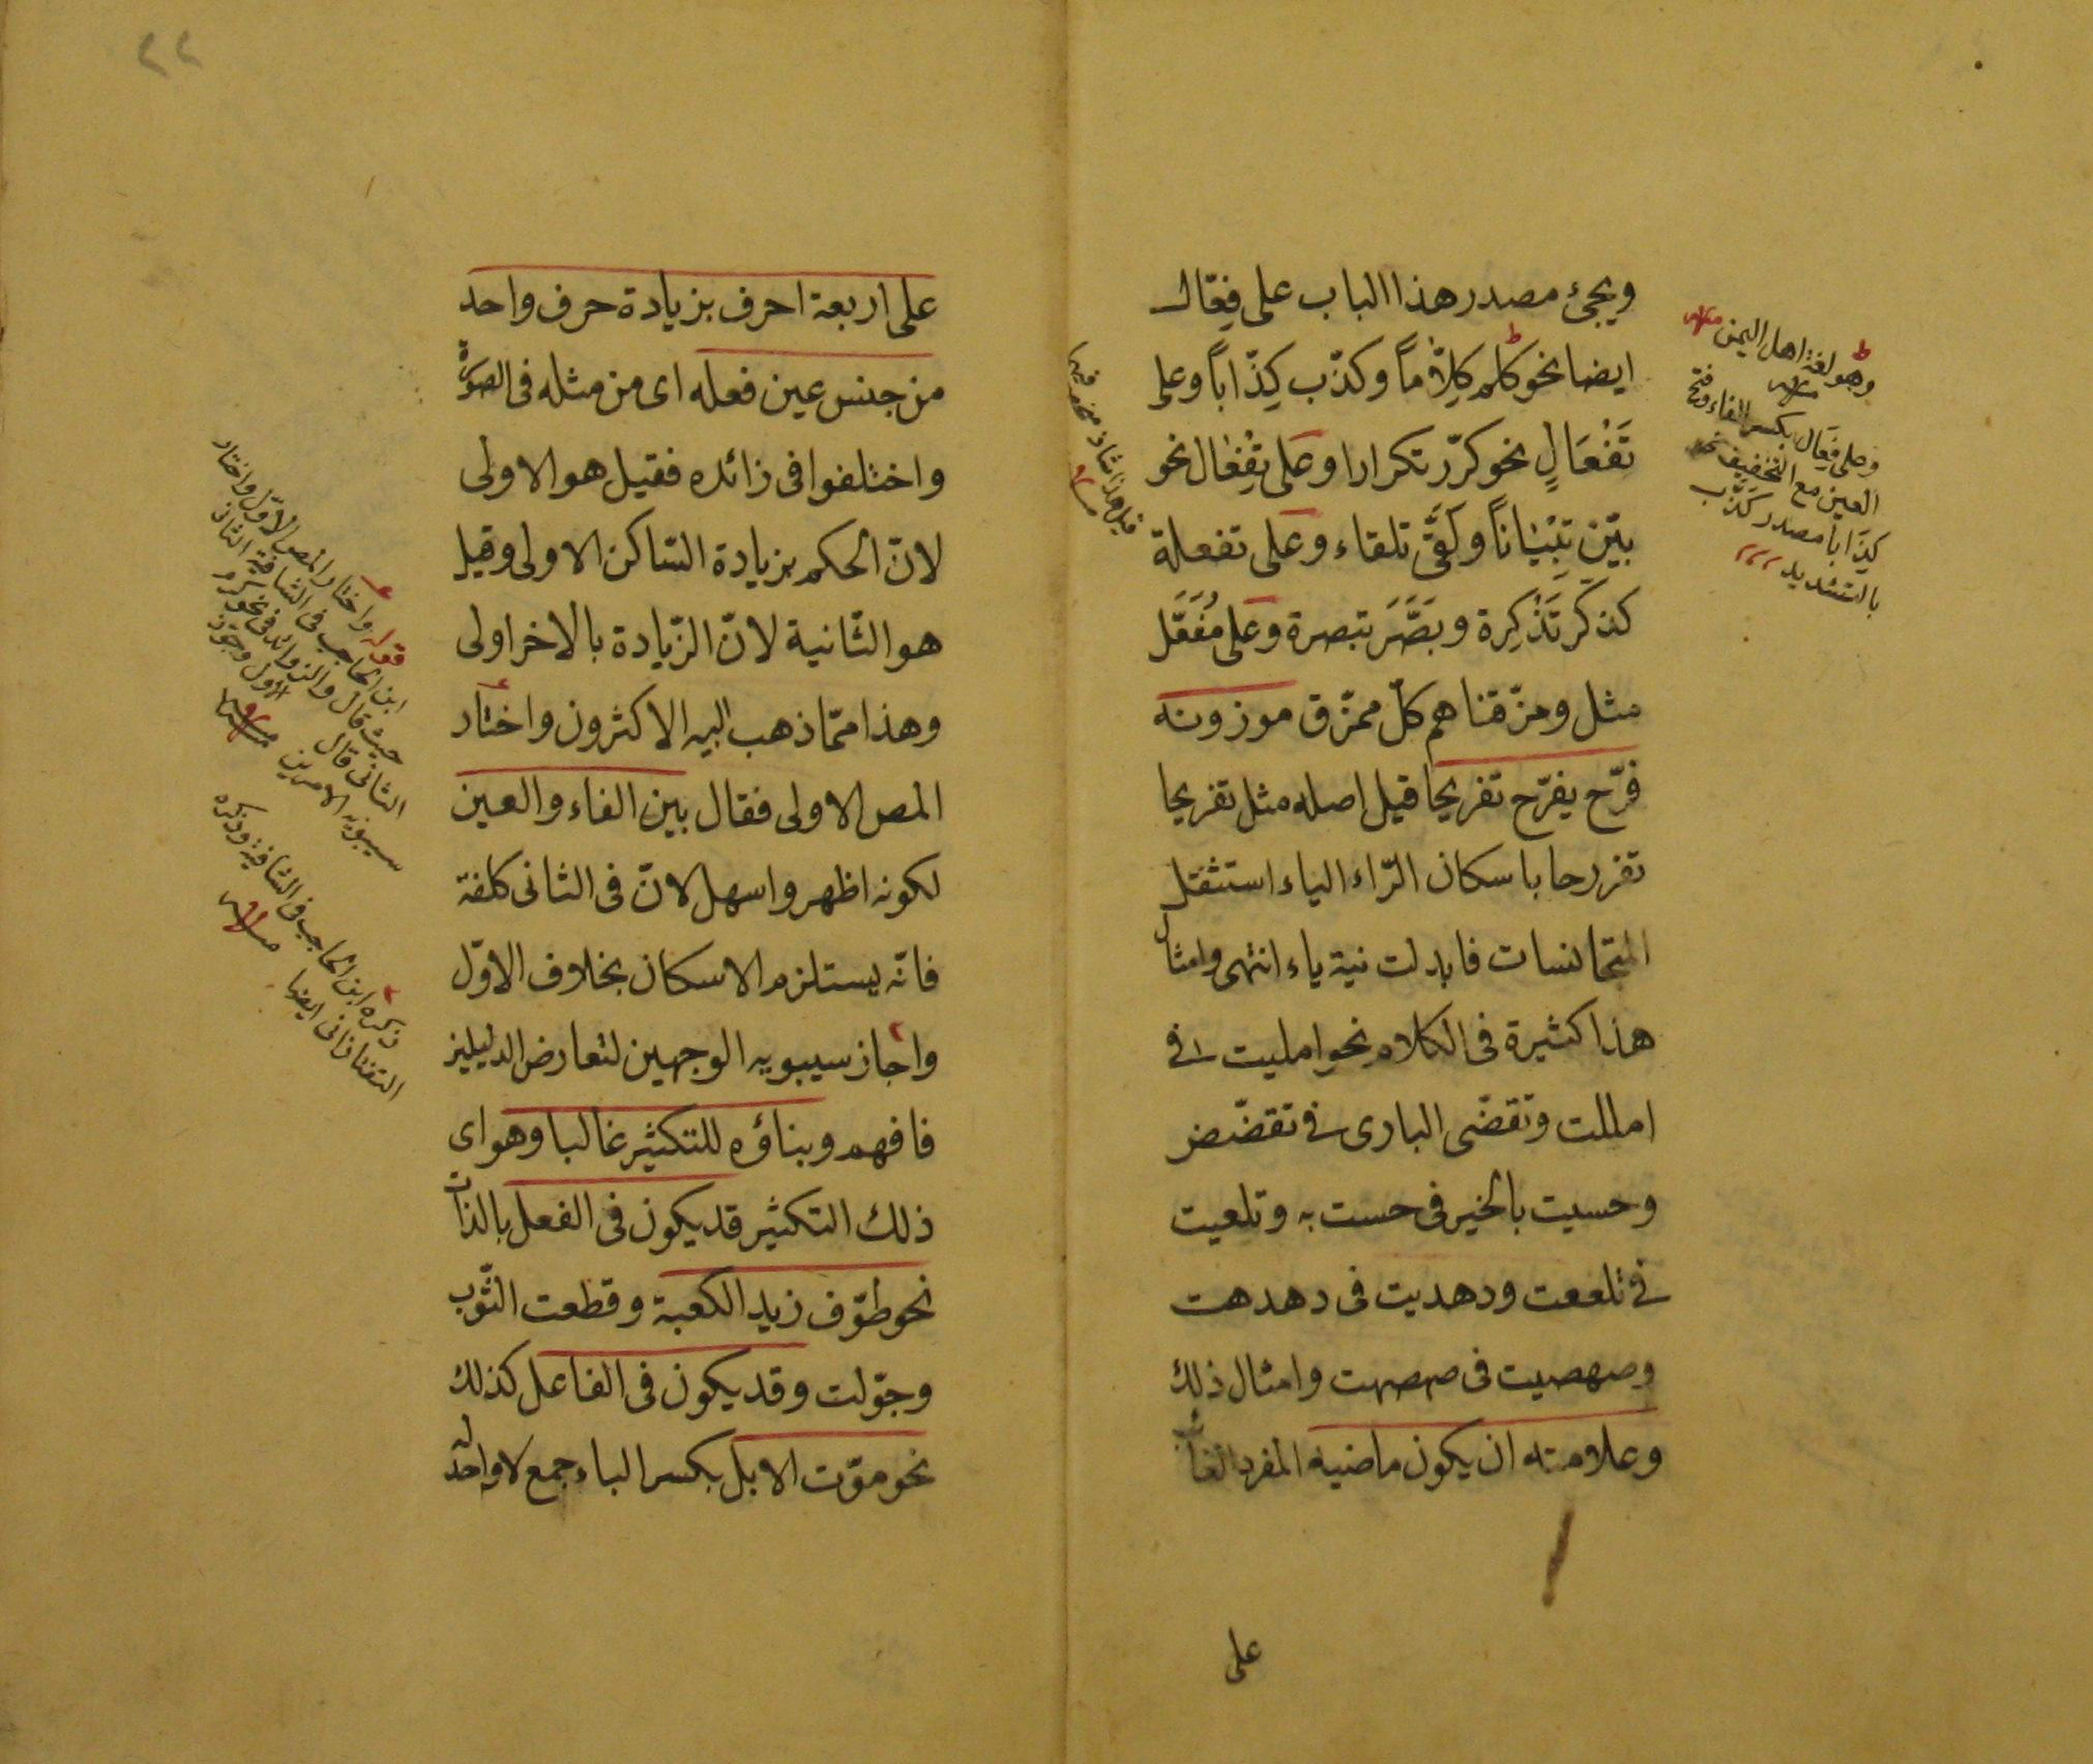 ويجئ مصدر هذا الباب على فِعّال
ايضا نحو كلم كِلّاماً وكذّب كِذّاباً وعلى
تَفْعَالٍ نحو كرّر تكرارا وعلى تِفْعَال نحو
بيّن تِبْيَاناً ولَقَّى تلقاء وعلى تفعلة
كذكّر تَذْكِرة وبَصَّرَ تبصرة وعلى مُفَعَّل
مثل ومزّقناهم كلّ ممزّق موزونه
فرّح يفرّح تفريحا قيل اصله مثل تفريحا
تفررحا باسكان الرّاء الياء استثقل
المتجانسات فابدلت نية ياء انتهى وامثال
هذا كثيرة فى الكلام نحو امليت فى
امللت وتقضّى البازى فى تقضّض
وحسيت بالخير فى حست به وتلعيت
فى تلععت ودهديت فى دهدهت
وصهصيت فى صهصهت وامثال ذلك
وعلامته ان يكون ماضيه المفرد الغائب
على
وهو لغة اهل اليمن
وعلى فِعَال بكسر الفاء وفتح
العين مع التخفيف نحو
كِذَابا مصدر كذّب
بالتشديد
قيل هذا شاذ
٢٢
على اربعة احرف بزيادة حرف واحد
من جنس عين فعله اى من مثله فى الصورة
واختلفوا فى زائده فقيل هو الاولى
لانّ الحكم بزيادة السّاكن الاولى وقيل
هو الثّانية لانّ الزّيادة بالاخر اولى
وهذا ممّا ذهب اليه الاكثرون واختار
المص الاولى فقال بين الفاء والعين
لكونه اظهر واسهل لانّ فى الثانى كلفة
فانّه يستلزم الاسكان بخلاف الاوّل
واجاز سيبويه الوجهين لتعارض الدليلين
فافهم وبناؤه للتكثير غالبا وهو اى
ذلك التكثير قد يكون فى الفعل بالذات
نحو طوّف زيد الكعبة وقطعت الثّوب
وجوّلت وقد يكون فى الفاعل كذلك
نحو موّت الابل بكسر الباء جمع لا واحد له
قوله واختار المص الاوّل واختار
ابن الحاجب فى الشافية الثانى
حيث قال والزوائد فى نحو كرم
الثانى قال الاول وجوّز
سيبويه الامرين
ذكره ابن الحاجب فى الشافية وذكره
التفتازانى ايضا